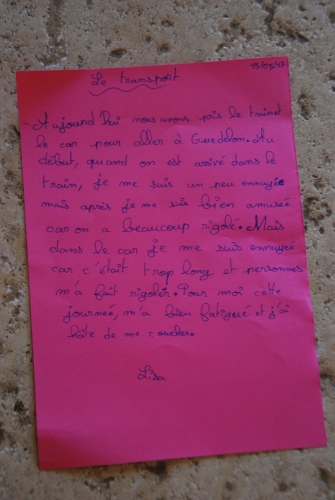 15/05/17
Le transport
- Aujourd'hui nous avons pris le train et
le car pour aller à Guedelon. Au
début, quand on est arivé dans le
train, je me suis un peu ennuyée
mais après je me suis bien amusée
car on a beaucoup rigolé. Mais
dans le car je me suis ennuyée
car c'était trop long et personnes
m'a fait rigoler. Pour moi cette
journée, m'a bien fatigué et j'ai
hâte de me coucher.
Lisa